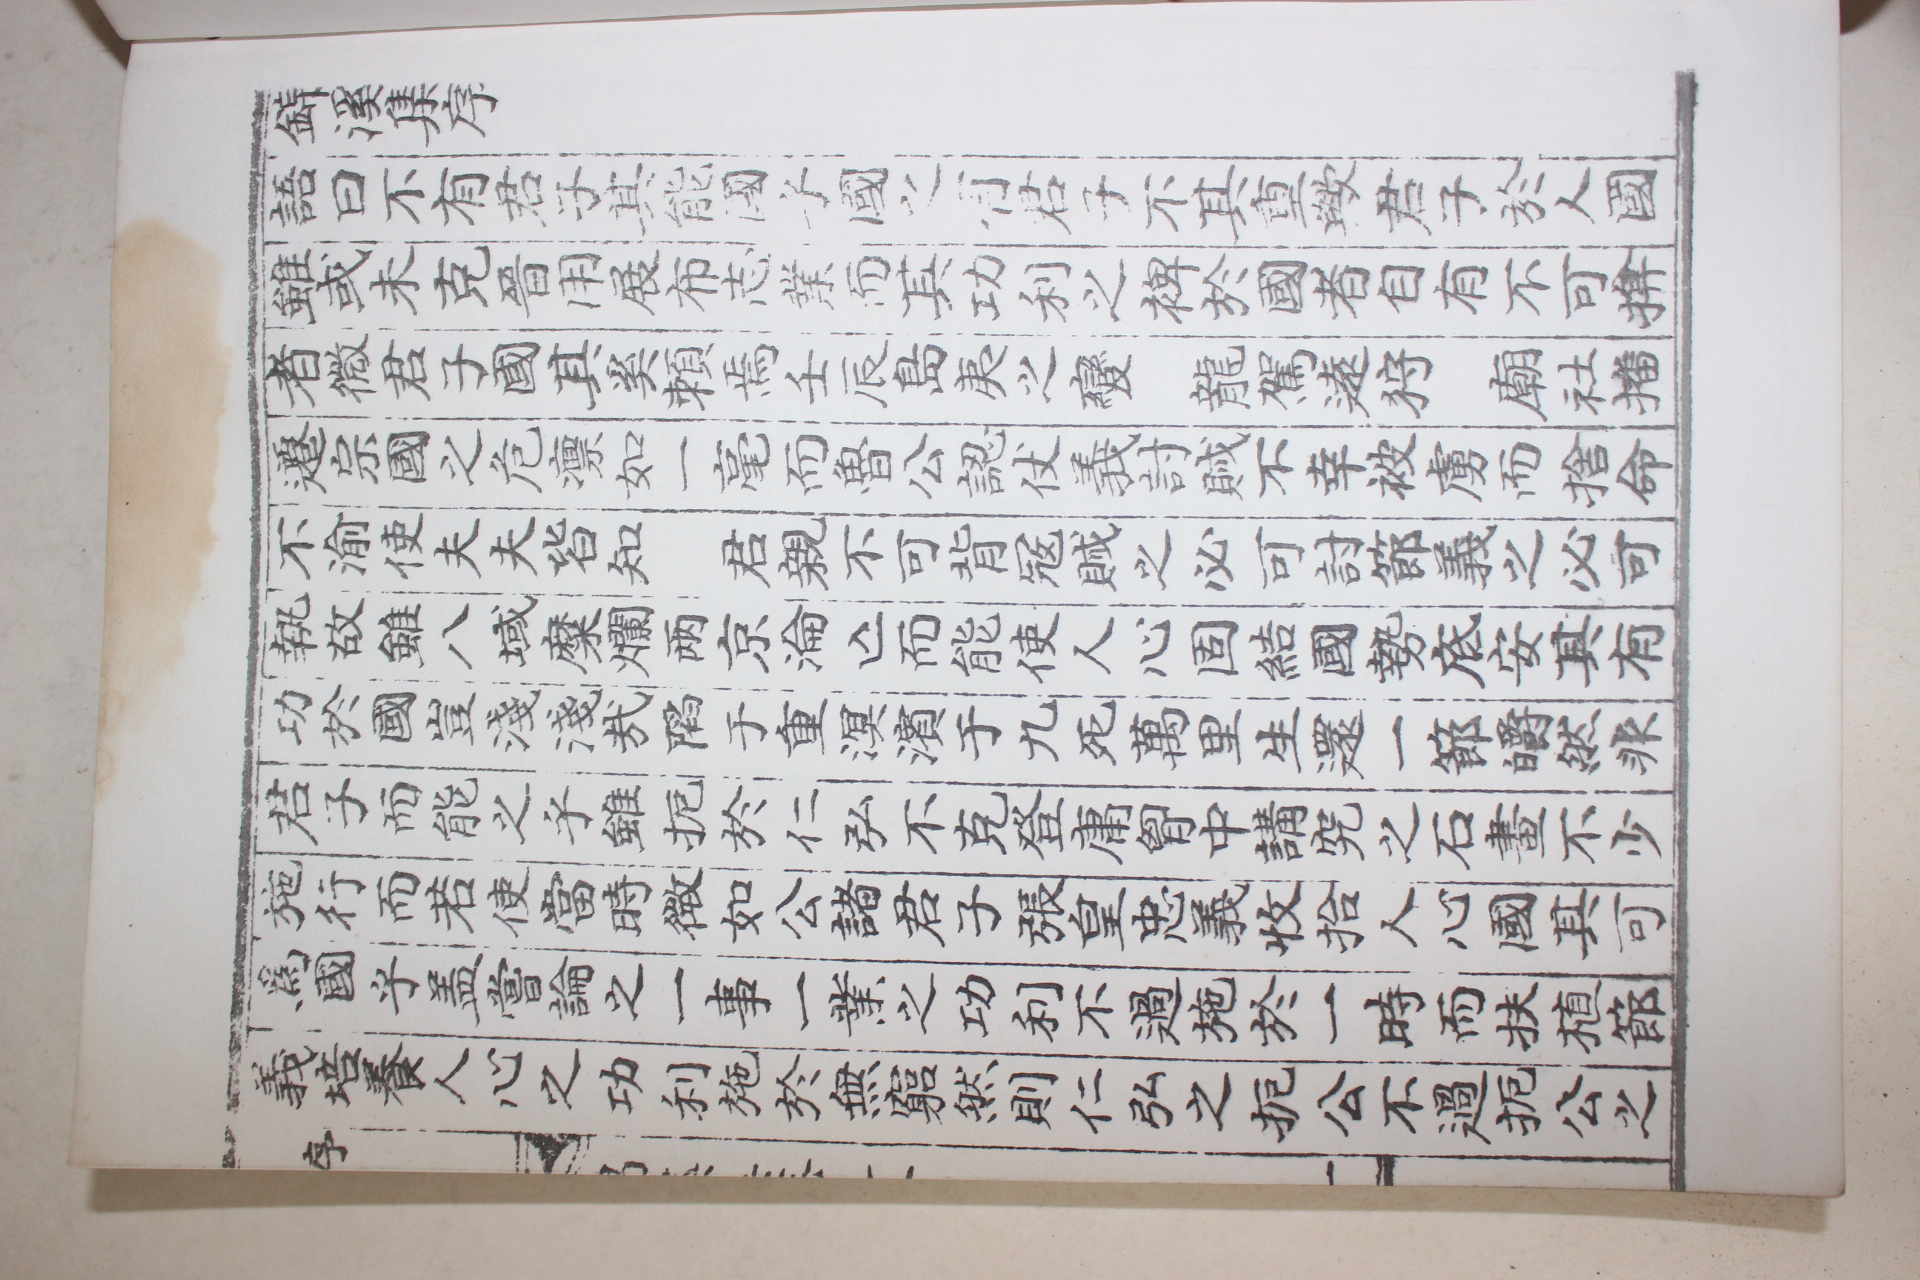 錦溪集序
語曰不有君子其能國乎國之有君子不其重歟君子於人國
雖或未克晉用展布志業而其功利之裨於國者自有不可揜
者微君子國其奚賴焉壬辰島夷之變　龍駕遠狩　廟社播
遷宗國之危凛如一毫而魯公認仗義討賊不幸被虜而捨命
不渝使夫夫皆知　君親不可背冦賊之必可討節義之必可
執故雖八域糜爛兩京淪亾而能使人心固結國勢底安其有
功於國豈淺淺哉陷于重溟濱于九死萬里生還一節皭然非
君子而能之乎雖扼於仁弘不克登庸胷中講究之石畫不少
施行而若使當時徵如公諸君子張皇忠義收拾人心國其可
爲國乎盖嘗論之一事一業之功利不過施於一時而扶植節
義培養人心之功利施於無窮然則仁弘之扼公不過扼公之
序